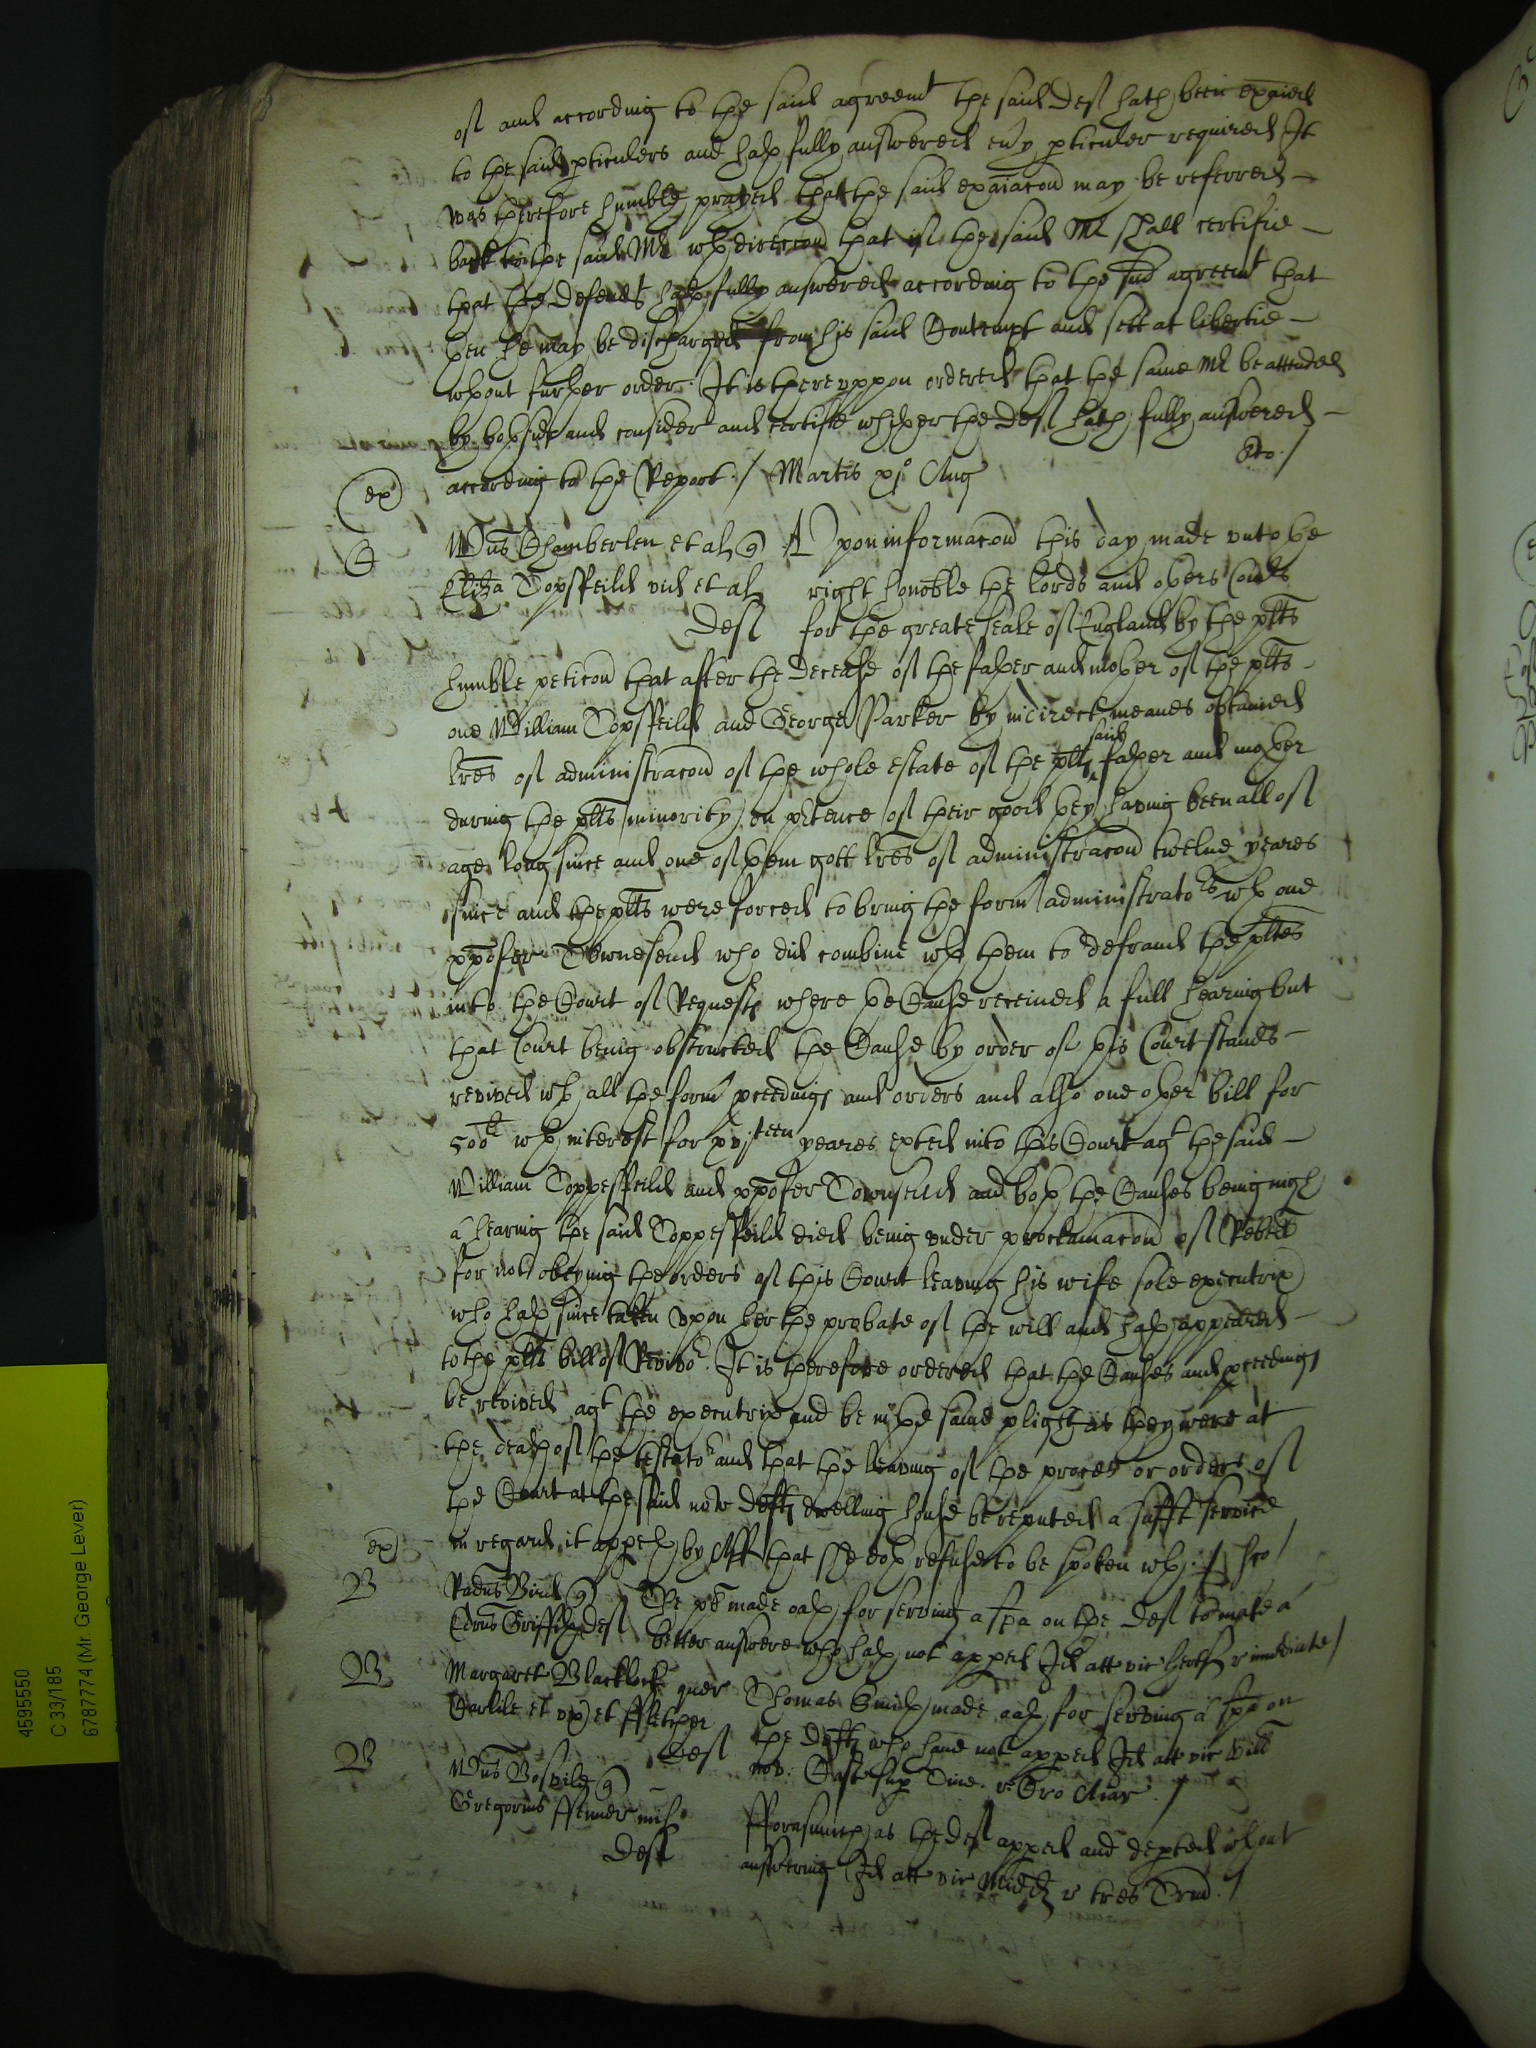 of and according to the said agreemt the said Deft hath been exaied
to the said pticulers and hath fully answered eu'y pticuler required It
was therefore humbly prayed that the said exaiacon may be referred
back to the said Mr wth direccon that if the said Mr shall certifie
that the Defendt hath fully answered according to the said agreemt that
then he may be discharged from his said Contempt and sett at libertie
wthout further order. It is therevppon ordered that the same Mr be attended
by both sides and consider and certifie whether the Deft hath fully answered
according to the Report./ Martis xj° Aug
ex
C
Wms Chamberlen et al q Vpon informacon this day made vnto the
Eliza Topsfeild vid et al right honoble the Lords and others Comrs
Deft for the greate seale of England by the plts
humble peticon that after the decease of the father and mother of the plts
one William Topsfeild and George Parker by indirect meanes obtained
said
lres of administracon of the whole estate of the plts father and mother
during the plts minority on ptence of their good they having been all of
age long since and one of them gott lres of administracon twelue yeares
since and the plts were forced to bring the form administrators wth one
xpofer Townesend who did combine wth them to defraud the pltes
into the Court of Requests where the Cause receiued a full hearing but
that Court being obstructed the Cause by order of this Court stands
revived wth all the form pceedings and orders and also one other bill for
500li wth interest for xvjteen yeares exted into this Court agt the said
William Toppesfeild and xpofer Townsend and both the Causes being nigh
a hearing the said Toppesfeild died being vnder proclamacon of Rebell
for not obeying the orders of this Court leaving his wife sole executrix
who hath since taken vpon her the probate of the will and hath appeared
to the plts bill of Revivor. It is therefore ordered that the Causes and pceedings
be revived agt the executrix and be in the same plight as they were at
the death of the testator and that the leaving of the proces or orders of
the Court at the said now Defts dwelling house be reputed a sufft service
in regard it appeth by Aff that she doth refuse to be spoken wth./
ex
B
Radus Bird q The plt made oath for serving a spa on the Deft to make a
Edrus Griffith Deft better answere who hath not apped Id att vic
B
Margaret Blacklock quer Thomas Smith made oath for serving a spa on
Carlile et vx et ffletcher the Defts who haue not apped Id att vic
Deft nov: Castr sup Tine.
B
Wms Bosvile q
Gregorius ffenner mil fforasmuch as the Deft apped and depted wthout
Deft answering Id att vic Midd r tres Trin./
4595550
C 33/185
6787774 (Mr. George Lever)